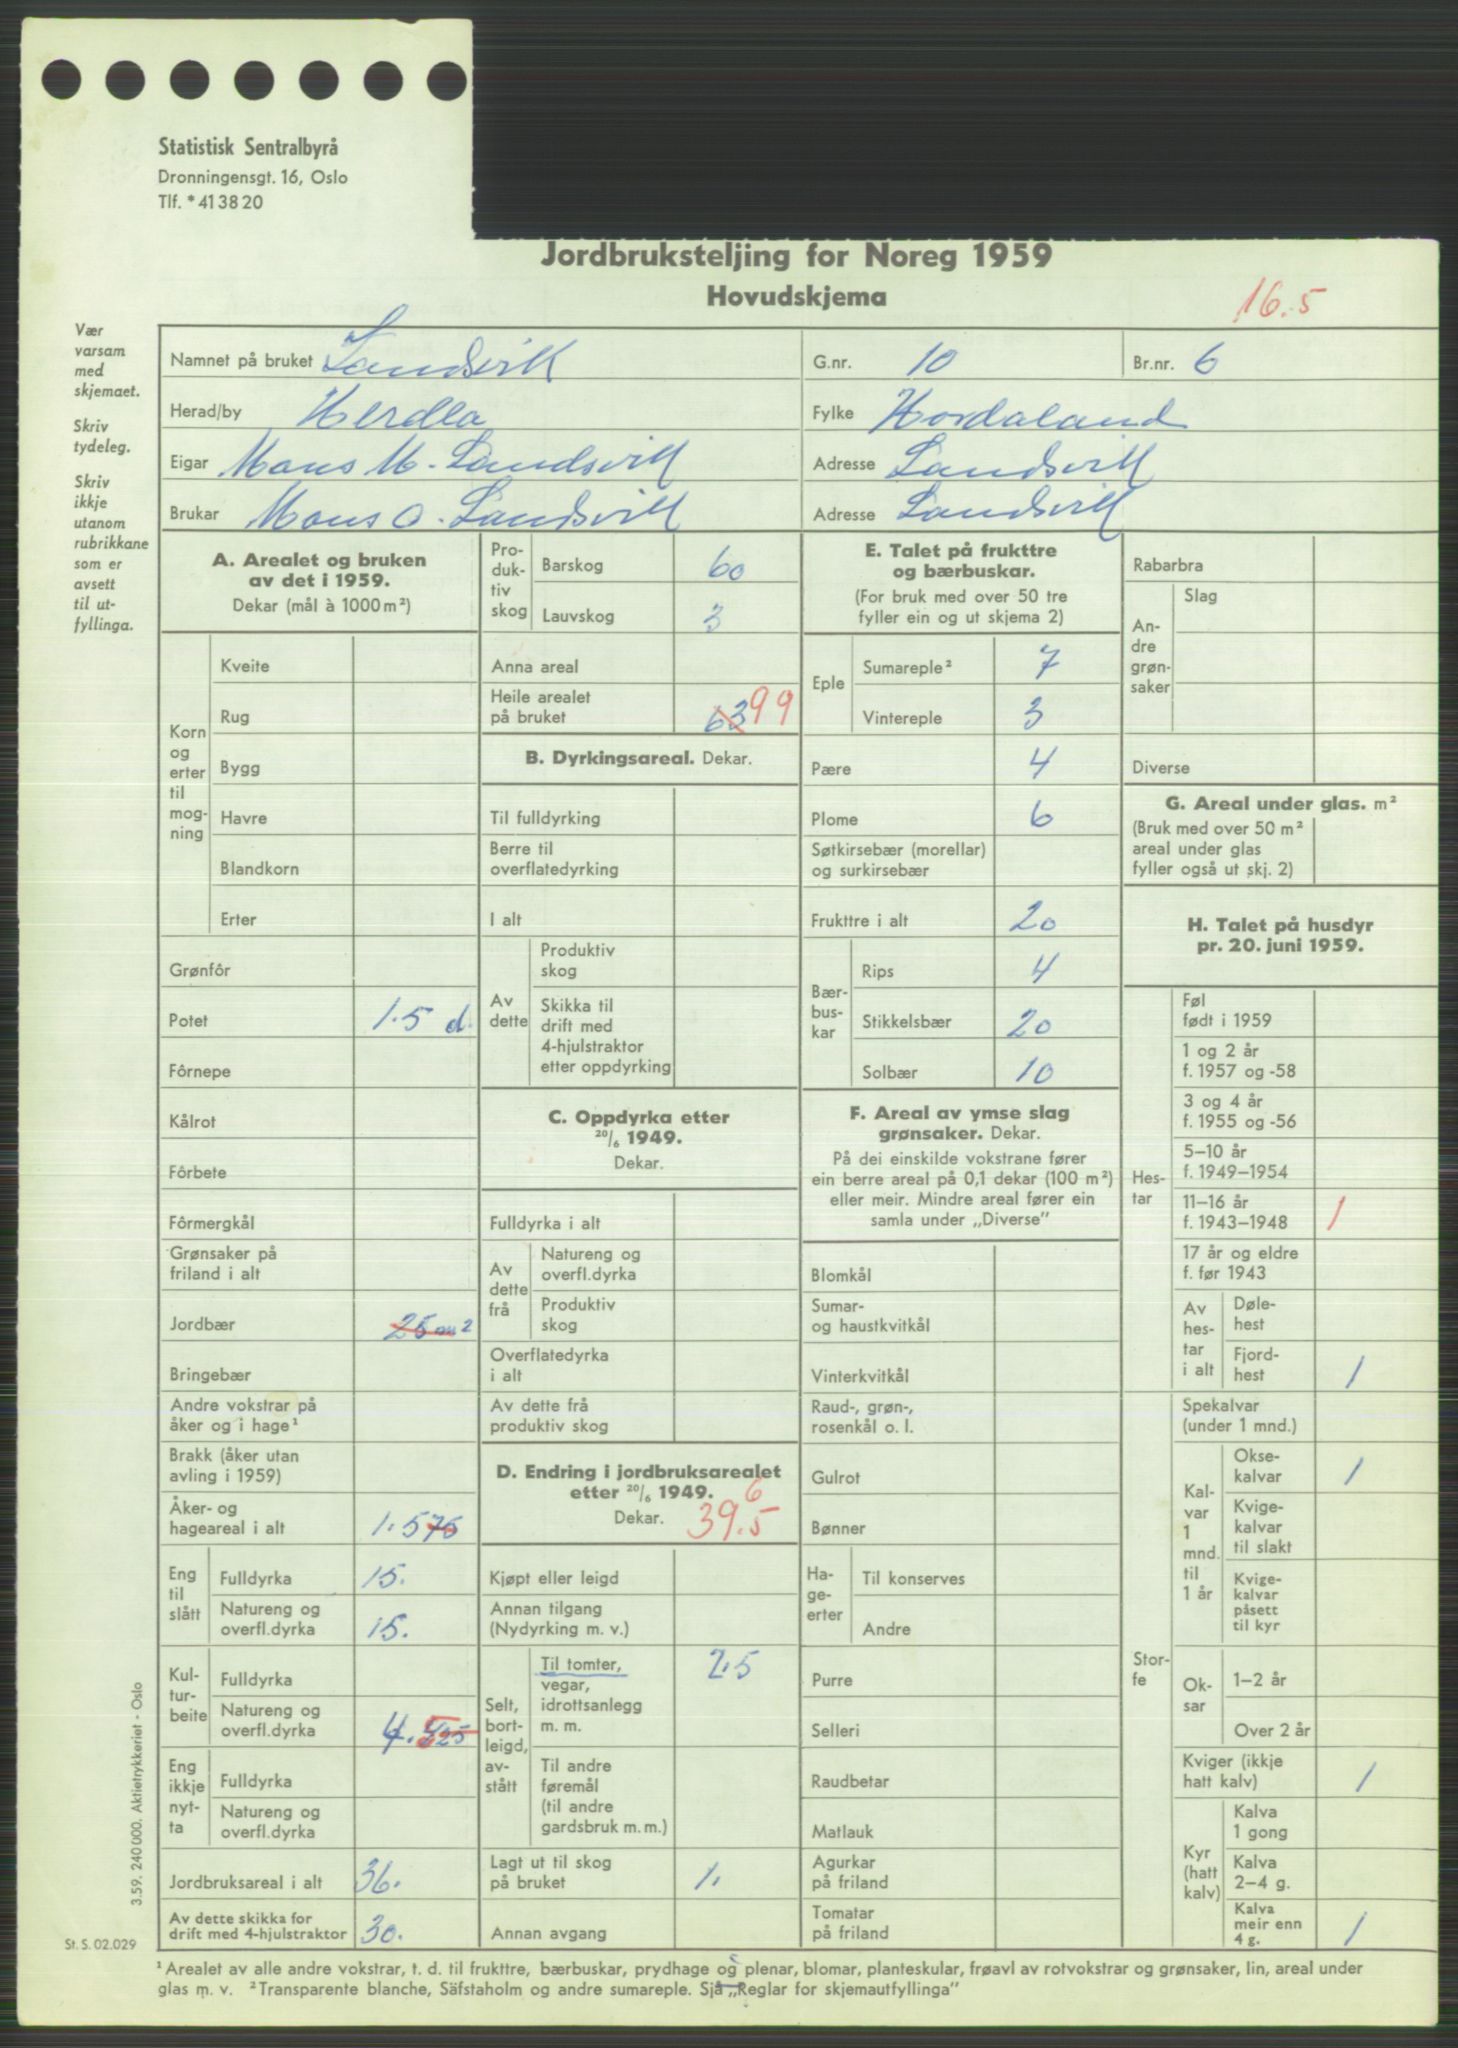 Statistisk Sentralbyrå
Dronningensgt. 16, Oslo
Tlf. * 41 38 20
Jordbruksteljing for Noreg 1959
Hovudskjema
16.5
Vær
varsam
med
skjemaet.
Skriv
tydeleg.
Skriv
ikkje
utanom
rubrikkane
som er
avsett
til ut-
fyllinga.
Namnet på bruket Landsvik G.nr. 10 Br.nr. 6
Herad/by Herdla Fylke Hordaland
Eigar Mons M. Landsvik Adresse Landsvik
Brukar Mons O. Landsvik Adresse Landsvik
A. Arealet og bruken
av det i 1959.
Dekar (mål à 1000 m²)
Korn
og
erter
til
mog-
ning
Kveite
Rug
Bygg
Havre
Blandkorn
Erter
Grønfôr
Potet 1.5 d.
Fôrnepe
Kålrot
Fôrbete
Fôrmergkål
Grønsaker på
friland i alt
Jordbær 25 m²
Bringebær
Andre vokstrar på
åker og i hage¹
Brakk (åker utan
avling i 1959)
Åker- og
hageareal i alt 1.575
Eng
til
slått
Fulldyrka 15.
Natureng og
overfl.dyrka 15.
Kul-
tur-
beite
Fulldyrka
Natureng og
overfl.dyrka 4.5
Eng
ikkje
nyt-
ta
Fulldyrka
Natureng og
overfl.dyrka
Jordbruksareal i alt 36.
Av dette skikka for
drift med 4-hjulstraktor 30.
Pro-
duk-
tiv
skog
Barskog 60
Lauvskog 3
Anna areal
Heile arealet
på bruket 63 99
B. Dyrkingsareal. Dekar.
Til fulldyrking
Berre til
overflatedyrking
I alt
Av
dette
Produktiv
skog
Skikka til
drift med
4-hjulstraktor
etter oppdyrking
C. Oppdyrka etter
20/6 1949.
Dekar.
Fulldyrka i alt
Av
dette
frå
Natureng og
overfl.dyrka
Produktiv
skog
Overflatedyrka
i alt
Av dette frå
produktiv skog
D. Endring i jordbruksarealet
etter 20/6 1949.
Dekar. 39.5 6
Kjøpt eller leigd
Annan tilgang
(Nydyrking m. v.)
Selt,
bort-
leigd,
av-
stått
Til tomter,
vegar,
idrottsanlegg
m. m. 2.5
Til andre
føremål
(til andre
gardsbruk m. m.)
Lagt ut til skog
på bruket 1.
Annan avgang
E. Talet på frukttre
og bærbuskar.
(For bruk med over 50 tre
fyller ein og ut skjema 2)
Eple
Sumareple² 7
Vintereple 3
Pære 4
Plome 6
Søtkirsebær (morellar)
og surkirsebær
Frukttre i alt 20
Bær-
bus-
kar
Rips 4
Stikkelsbær 20
Solbær 10
F. Areal av ymse slag
grønsaker. Dekar.
På dei einskilde vokstrane fører
ein berre areal på 0,1 dekar (100 m²)
eller meir. Mindre areal fører ein
samla under „Diverse”
Blomkål
Sumar-
og haustkvitkål
Vinterkvitkål
Raud-, grøn-,
rosenkål o. l.
Gulrot
Bønner
Ha-
ge-
erter
Til konserves
Andre
Purre
Selleri
Raudbetar
Matlauk
Agurkar
på friland
Tomatar
på friland
Rabarbra
An-
dre
grøn-
saker
Slag
Diverse
G. Areal under glas. m²
(Bruk med over 50 m²
areal under glas
fyller også ut skj. 2)
H. Talet på husdyr
pr. 20. juni 1959.
Hes-
tar
Føl
født i 1959
1 og 2 år
f. 1957 og -58
3 og 4 år
f. 1955 og -56
5–10 år
f. 1949–1954
11–16 år
f. 1943–1948 1
17 år og eldre
f. før 1943
Av
hes-
tar
i alt
Døle-
hest
Fjord-
hest 1
Stor-
fe
Spekalvar
(under 1 mnd.)
Kal-
var
1
mnd.
til
1 år
Okse-
kalvar 1
Kvige-
kalvar
til slakt
Kvige-
kalvar
påsett
til kyr
Ok-
sar
1–2 år
Over 2 år
Kviger (ikkje
hatt kalv) 1
Kyr
(hatt
kalv)
Kalva
1 gong
Kalva
2–4 g.
Kalva
meir enn
4 g. 1
3.59. 240 000. Aktietrykkeriet - Oslo
St. S. 02.029
¹ Arealet av alle andre vokstrar, t. d. til frukttre, bærbuskar, prydhage og plenar, blomar, planteskular, frøavl av rotvokstrar og grønsaker, lin, areal under
glas m. v. ² Transparente blanche, Säfstaholm og andre sumareple. Sjå „Reglar for skjemautfyllinga”